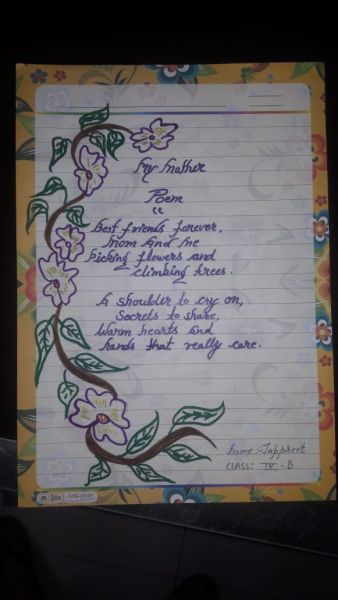 My Mother
Poem
"
Best friends forever,
Mom And Me
Picking flowers and
climbing trees.
A shoulder to cry on,
Secrets to share,
Warm hearts And
hands that really care.
Name:- Jappreet
CLASS: IV - B